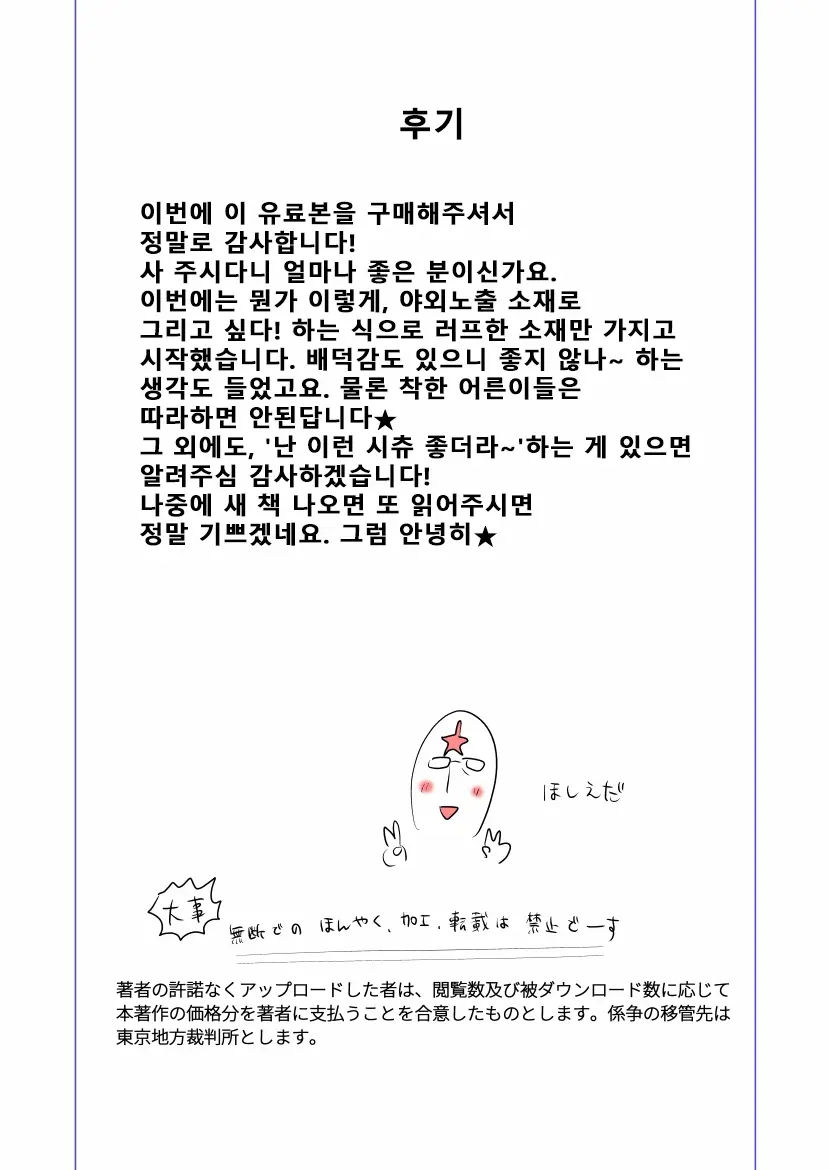 후기
이번에 이 유료본을 구매해주셔서
정말로 감사합니다!
사 주시다니 얼마나 좋은 분이신가요.
이번에는 뭔가 이렇게, 야외노출 소재로
그리고 싶다! 하는 식으로 러프한 소재만 가지고
시작했습니다. 배덕감도 있으니 좋지 않나~ 하는
생각도 들었고요. 물론 착한 어른이들은
따라하면 안된답니다★
그 외에도, '난 이런 시츄 좋더라~'하는 게 있으면
알려주심 감사하겠습니다!
나중에 새 책 나오면 또 읽어주시면
정말 기쁘겠네요. 그럼 안녕히★
ほしえだ
大事
無断での ほんやく、加工、転載は 禁止でーす
著者の許諾なくアップロードした者は、閲覧数及び被ダウンロード数に応じて
本著作の価格分を著者に支払うことを合意したものとします。係争の移管先は
東京地方裁判所とします。